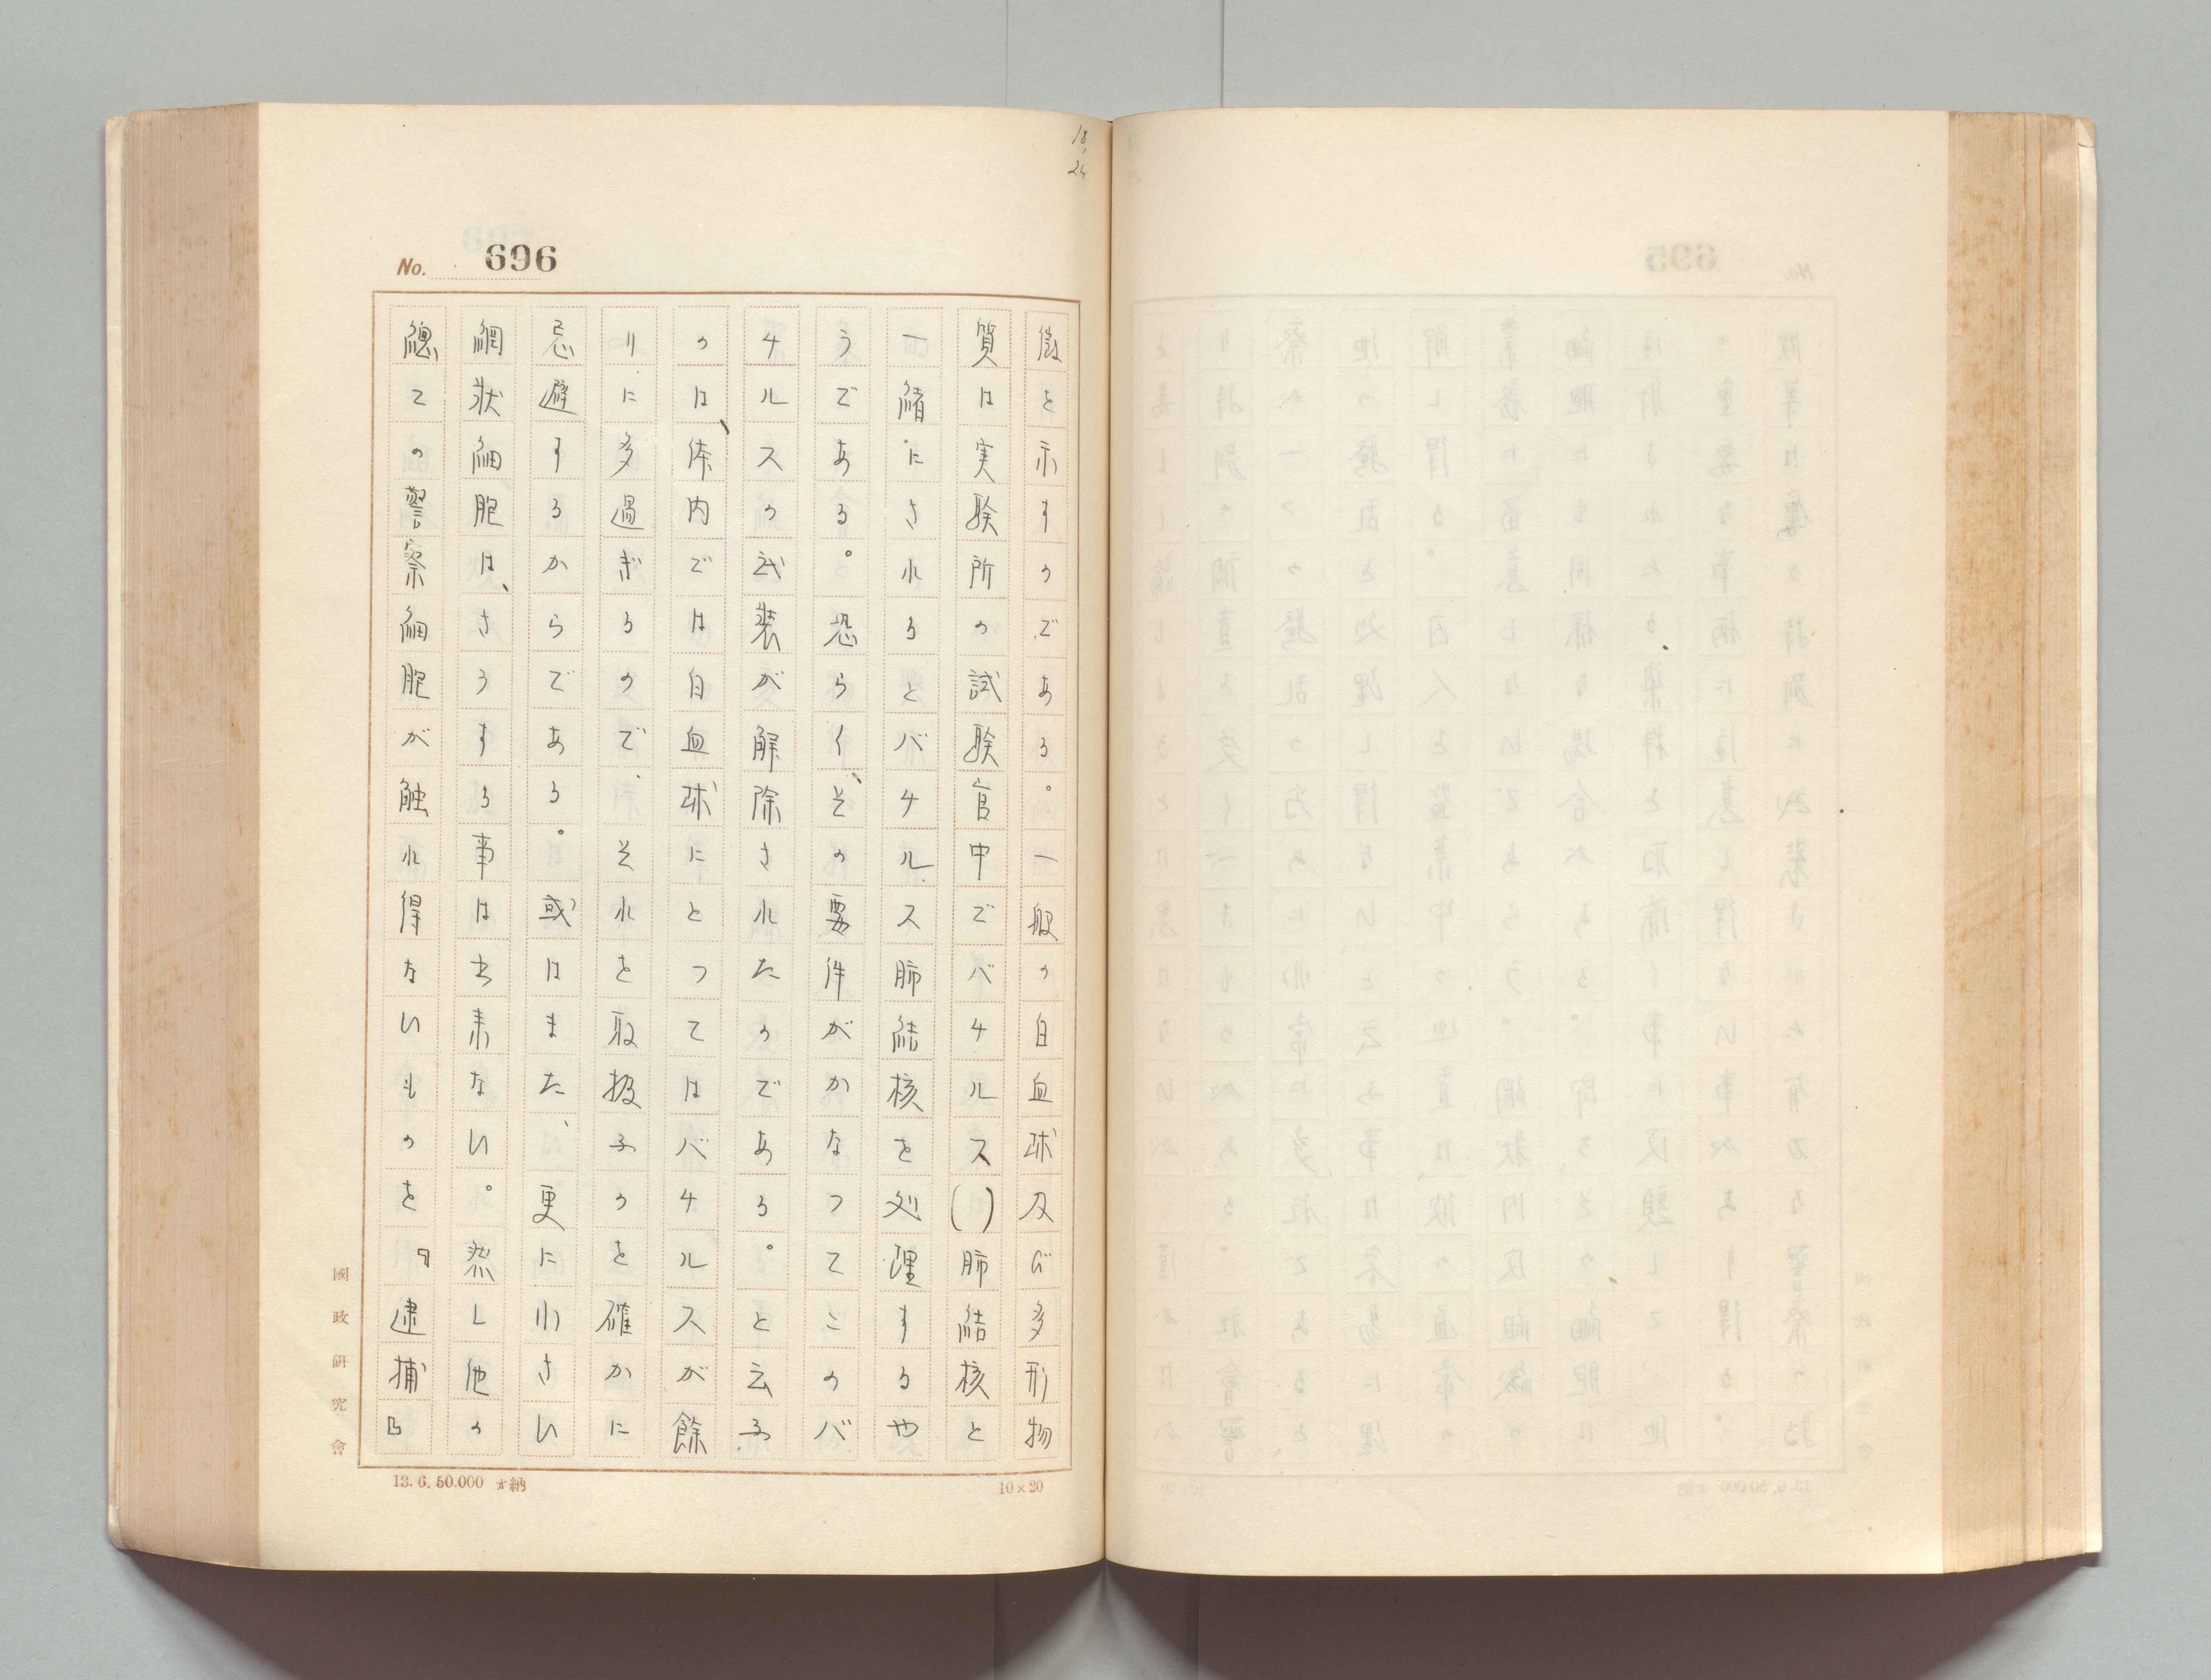 18,
24
No. 696
徴を示すのである。一般の白血球及び多形物
質は実験所の試験官中でバチルス()肺結核と
一緒にされるとバチルス肺結核を処理するや
うである。恐らく、その要件がかなつてこのバ
チルスの武装が解除されたのであると云ふ
のは、体内では白血球にとつてはバチルスが餘
りに多過ぎるので、それを取扱ふのを確かに
忌避するからである。或はまた、更に小さい
網状細胞は、さうする事は出来ない。然し他の
総ての警察細胞が触れ得ないものを『逮捕』
國政研究會
13.6.50.000 納
10×20